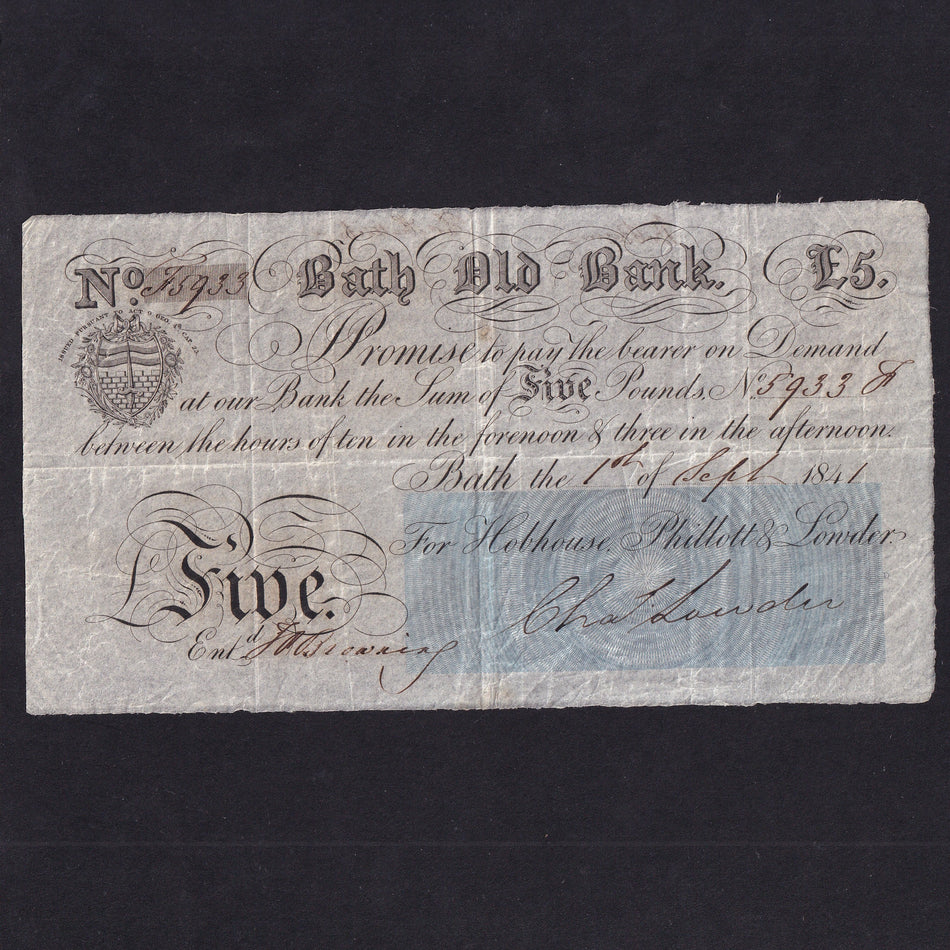 No. F5933 Bath Old Bank. £5.
ISSUED PURSUANT TO ACT 9 GEO. 4. CAP. 23.
I Promise to pay the bearer on Demand
at our Bank the Sum of Five Pounds. No. 5933 F
between the hours of ten in the forenoon & three in the afternoon.
Bath the 1st of Sept 1841
For Hobhouse, Phillott & Lowder.
Five.
Chas Lowder
Entd Browning